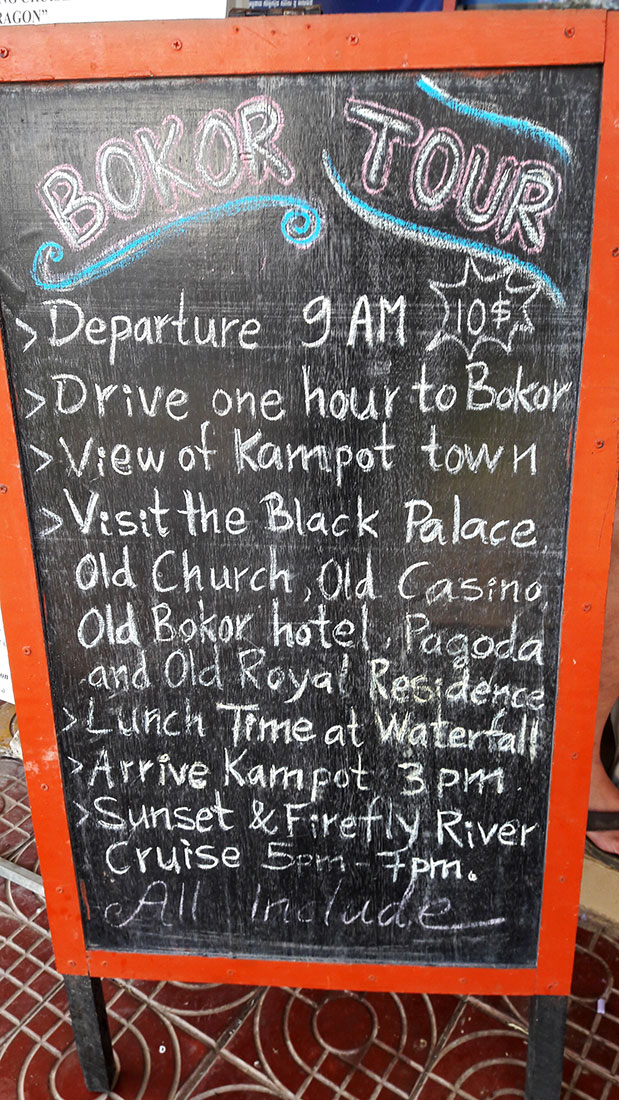 RAGON"
BOKOR TOUR
> Departure 9 AM 10$
> Drive one hour to Bokor
> View of Kampot town
> Visit the Black Palace,
Old Church, Old Casino,
Old Bokor hotel, Pagoda
and Old Royal Residence
> Lunch Time at Waterfall
> Arrive Kampot 3 pm.
> Sunset & Firefly River
Cruise 5pm - 7pm.
All Include